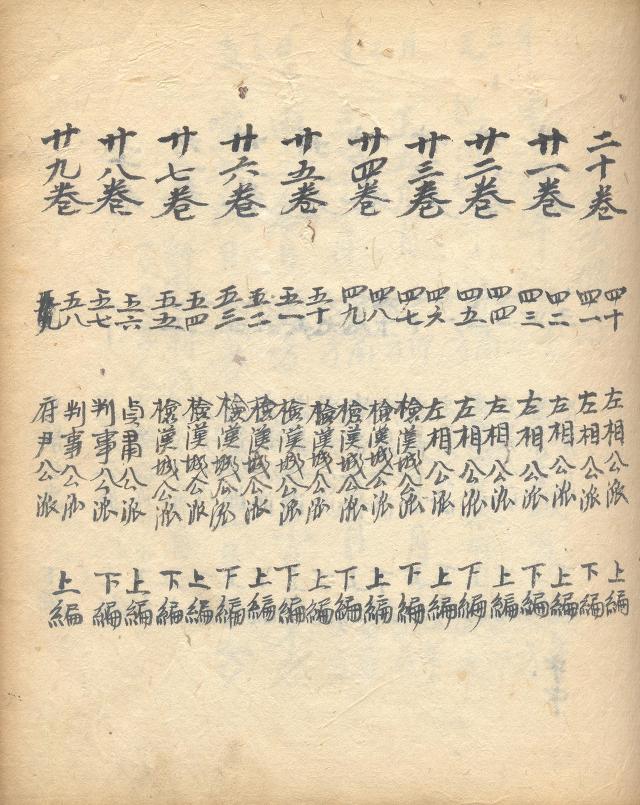 二十卷 四十 左相公派 上編
四一 左相公派 下編
廿一卷 四二 左相公派 上編
四三 左相公派 下編
廿二卷 四四 左相公派 上編
四五 左相公派 下編
廿三卷 四六 左相公派 上編
四七 檢漢城公派 下編
廿四卷 四八 檢漢城公派 上編
四九 檢漢城公派 下編
廿五卷 五十 檢漢城公派 上編
五一 檢漢城公派 下編
廿六卷 五二 檢漢城公派 上編
五三 檢漢城公派 下編
廿七卷 五四 檢漢城公派 上編
五五 檢漢城公派 下編
廿八卷 五六 貞肅公派 上編
五七 判事公派 下編
廿九卷 五八 判事公派 上編
五九 府尹公派